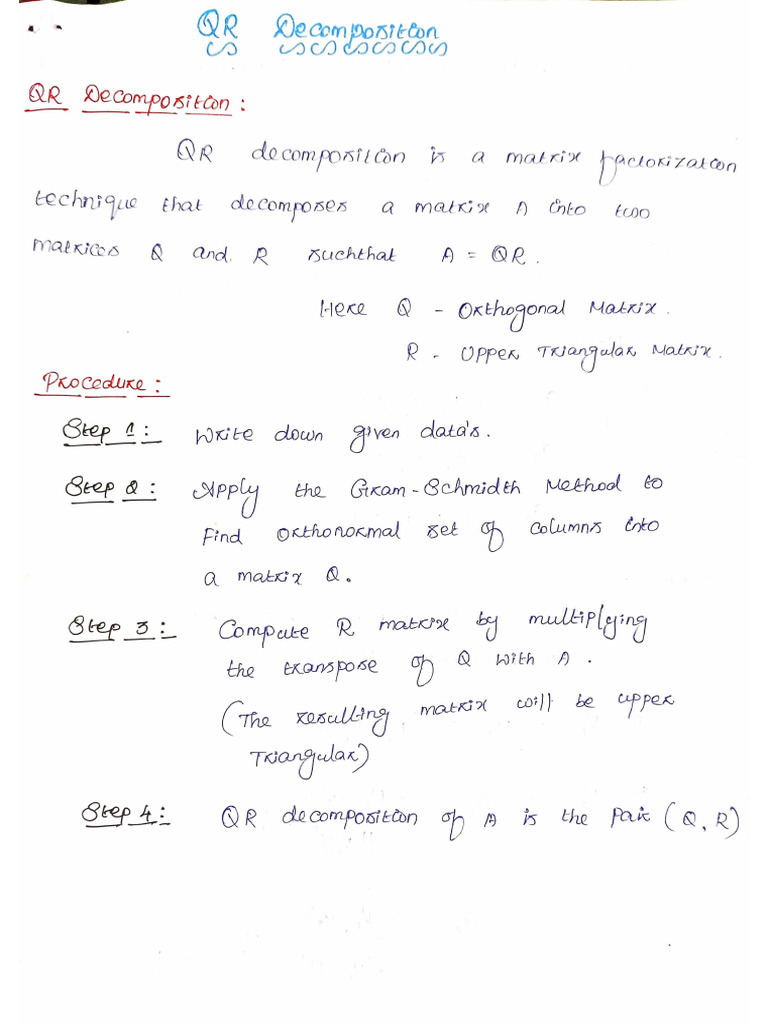 QR Decomposition
QR Decomposition :
QR decomposition is a matrix factorization
technique that decomposes a matrix A into two
matrices Q and R suchthat A = QR.
Here Q - Orthogonal Matrix.
R - Upper Triangular Matrix.
Procedure :
Step 1 : Write down given data's.
Step 2 : Apply the Gram-Schmidth Method to
Find orthonormal set of columns into
a matrix Q.
Step 3 : Compute R matrix by multiplying
the transpose of Q with A.
(The resulting matrix will be upper
Triangular)
Step 4 : QR decomposition of A is the pair (Q, R)